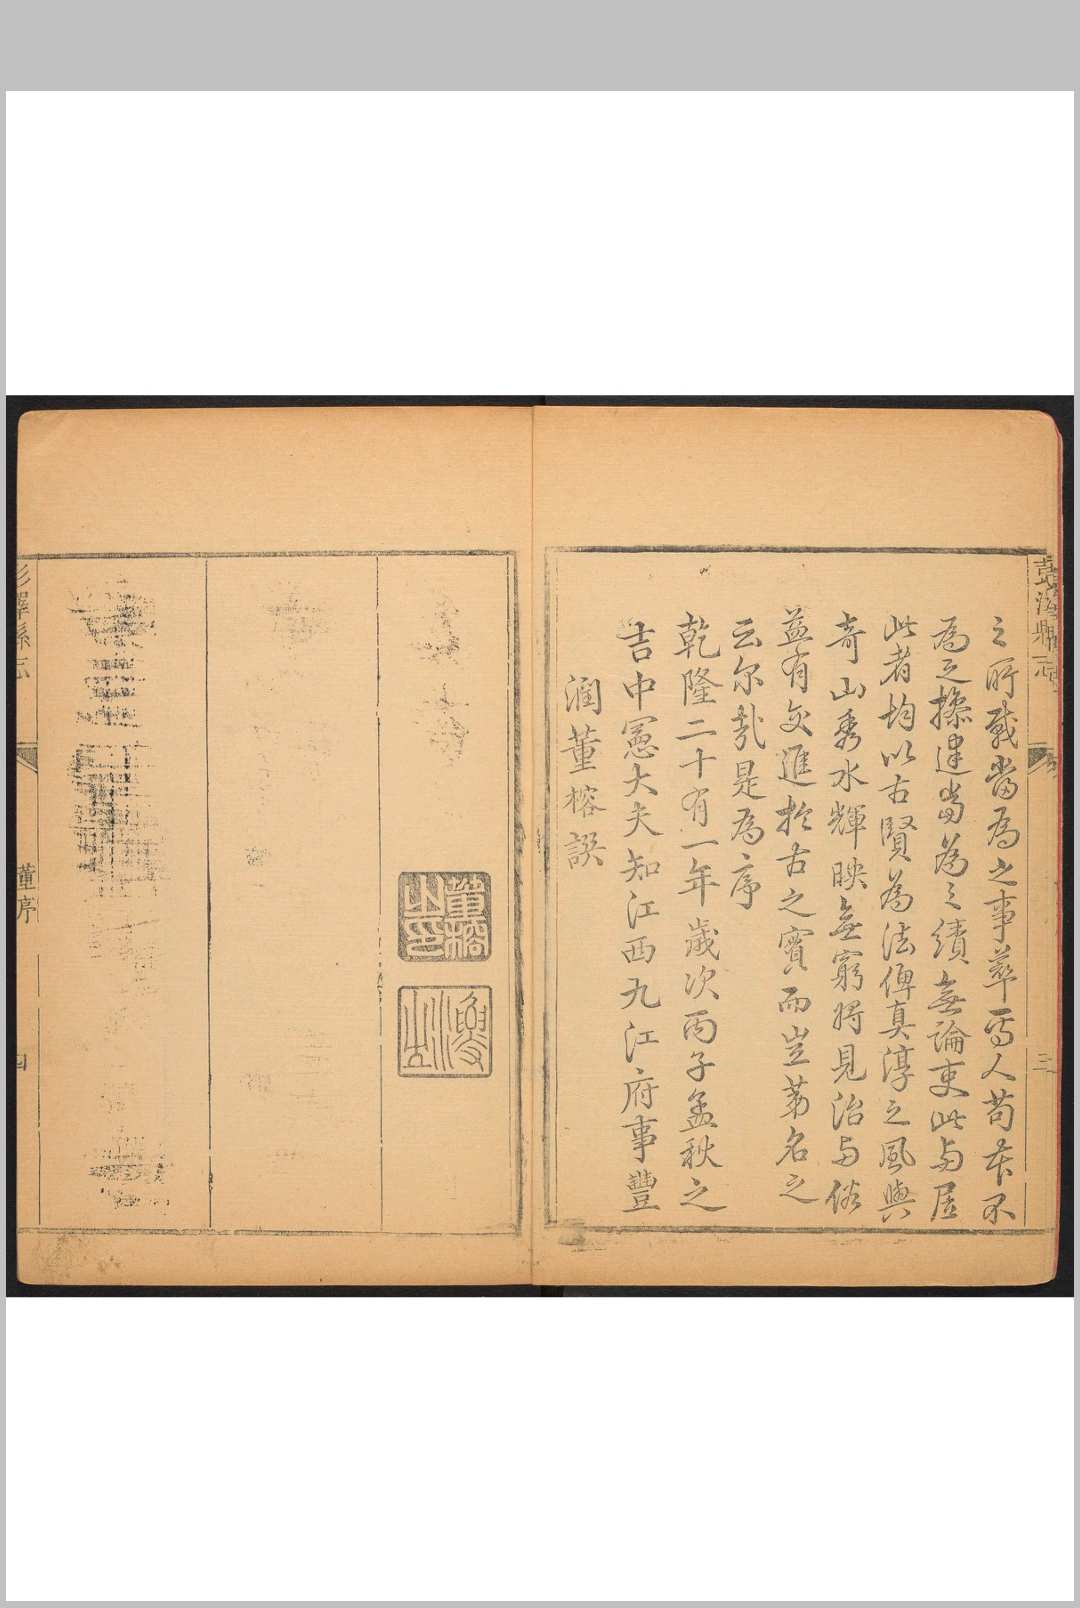 彭澤縣志
三
之所載當為之事萃焉人苟本不
為之操建當為之績無論吏此与居
此者均以古賢為法俾真淳之風與
奇山秀水輝映無窮將見治与俗
益有交進於古之實而豈第名之
云尔哉是為序
乾隆二十有一年歲次丙子孟秋之
吉中憲大夫知江西九江府事豐
潤董榕譔
董榕之印
彭澤縣志
董序
四